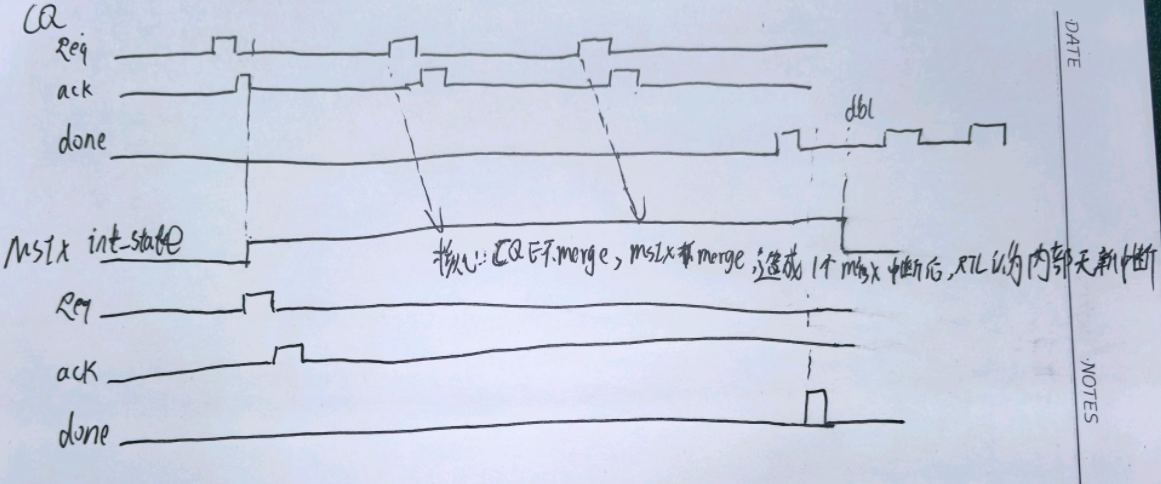 CQ
Req
ack
done
dbl
MSIX int_state
核心:CQE不merge,msix merge,造成1个msix中断后,RTL认为内部无新中断
Req
ack
done
DATE
NOTES